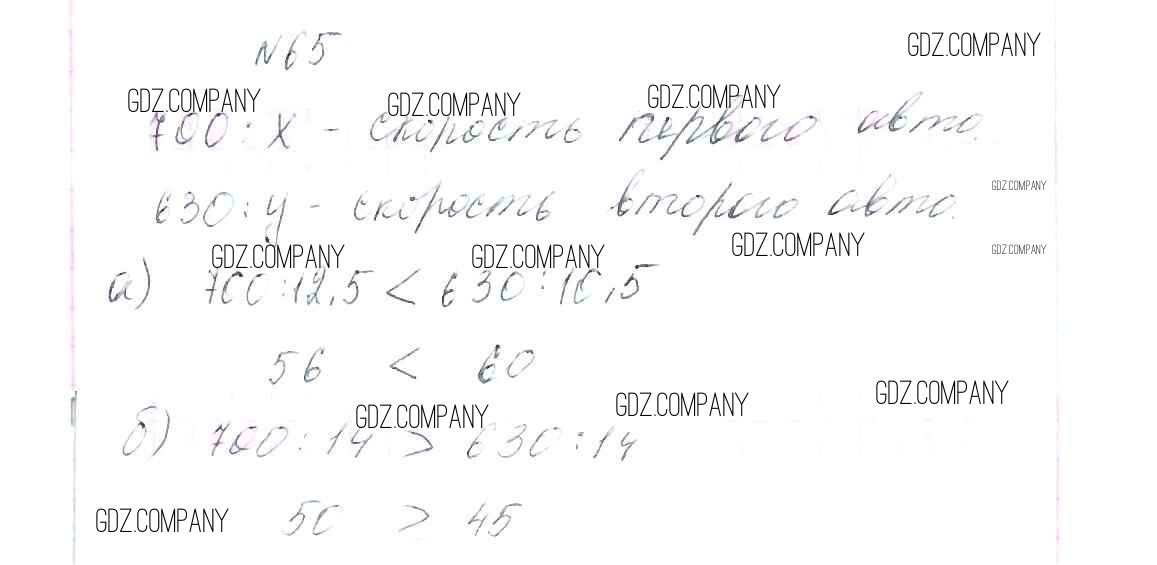 №65
GDZ.COMPANY
GDZ.COMPANY GDZ.COMPANY GDZ.COMPANY
700 : х - скорость первого авто.
630 : у - скорость второго авто.
GDZ.COMPANY
GDZ.COMPANY GDZ.COMPANY GDZ.COMPANY GDZ.COMPANY
а) 700 : 12,5 < 630 : 10,5
56 < 60
GDZ.COMPANY GDZ.COMPANY GDZ.COMPANY
б) 700 : 14 > 630 : 14
GDZ.COMPANY 50 > 45